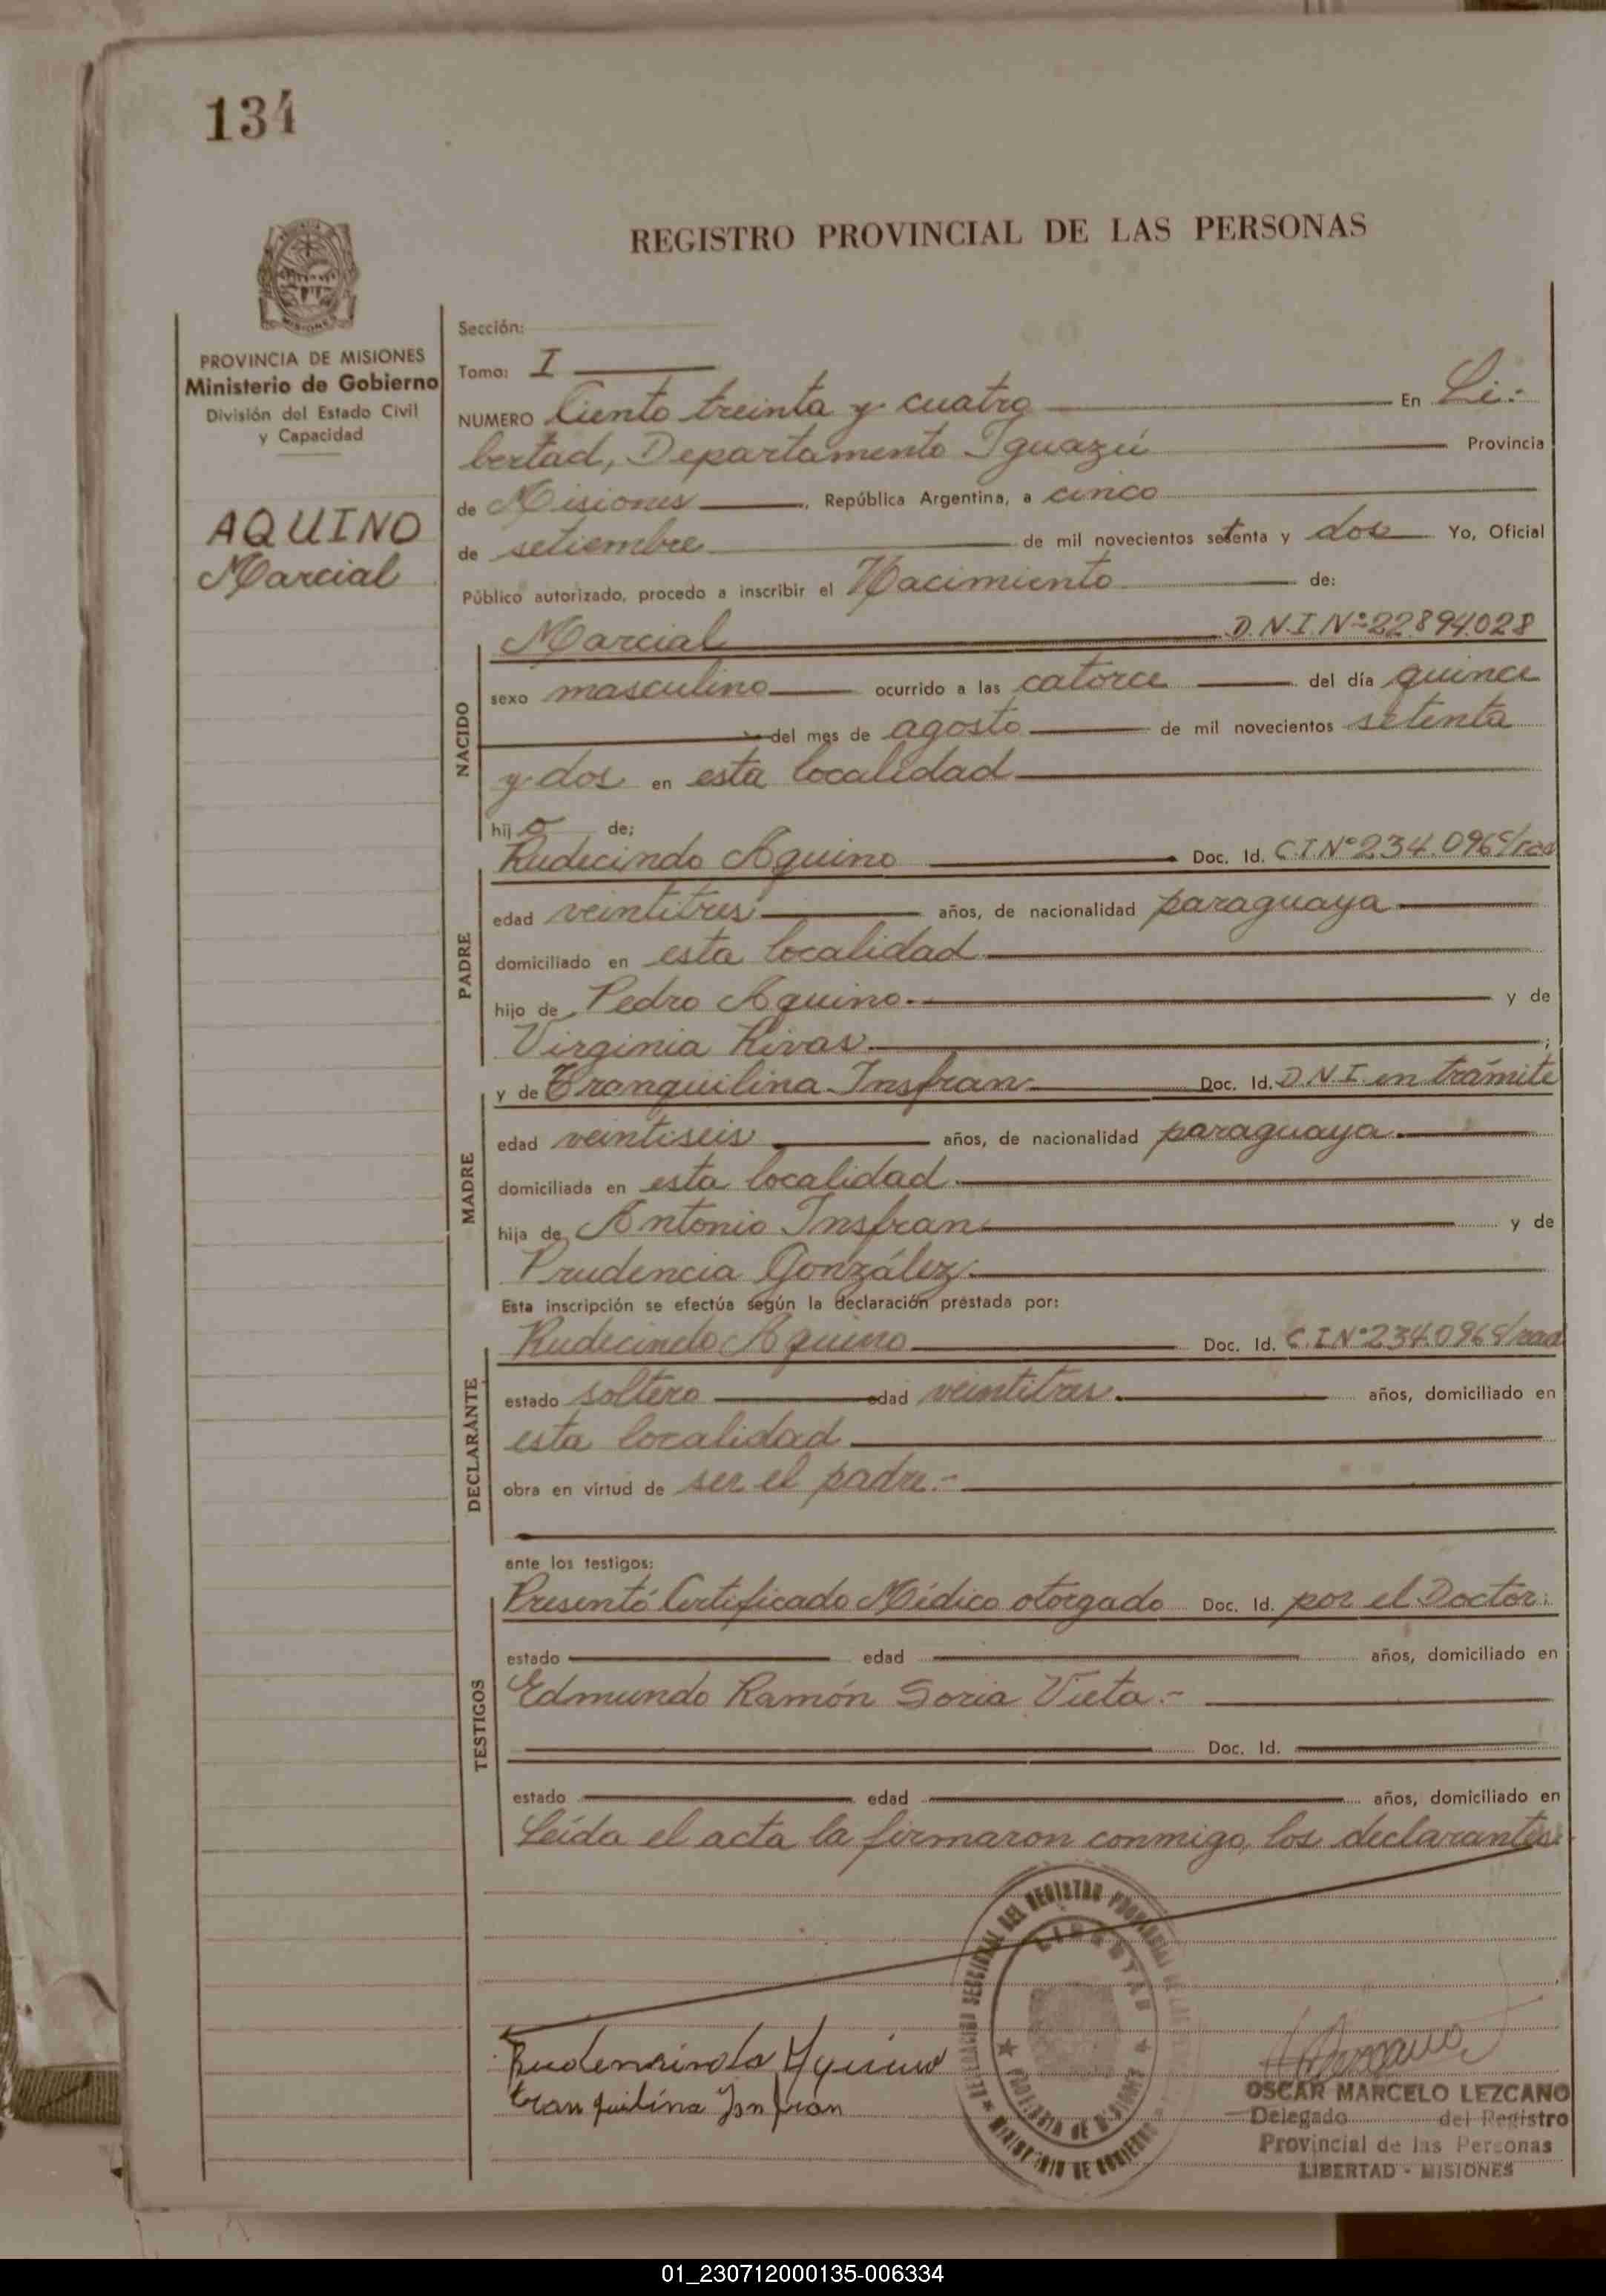 134
REGISTRO PROVINCIAL DE LAS PERSONAS
MISIONES
PROVINCIA DE MISIONES
Ministerio de Gobierno
División del Estado Civil
y Capacidad
AQUINO
Marcial
Sección:
Tomo: I
NUMERO Ciento treinta y cuatro En Li-
bertad, Departamento Iguazú Provincia
de Misiones, República Argentina, a cinco
de setiembre de mil novecientos setenta y dos Yo, Oficial
Público autorizado, procedo a inscribir el Nacimiento de:
NACIDO
Marcial D.N.I. Nº 22894.028
sexo masculino ocurrido a las catorce del día quince
del mes de agosto de mil novecientos setenta
y dos en esta localidad
hijo de;
PADRE
Rudecindo Aquino Doc. Id. C.I.Nº 234.096
edad veintitres años, de nacionalidad paraguaya
domiciliado en esta localidad
hijo de Pedro Aquino.- y de
Virginia Rivas ;
MADRE
y de Tranquilina Insfran Doc. Id. D.N.I. en trámite
edad veintiseis años, de nacionalidad paraguaya.
domiciliada en esta localidad.
hija de Antonio Insfran y de
Prudencia González.
Esta inscripción se efectúa según la declaración prestada por:
DECLARANTE
Rudecindo Aquino Doc. Id. C.I.Nº 234.096
estado soltero edad veintitres. años, domiciliado en
esta localidad
obra en virtud de ser el padre.-
ante los testigos:
TESTIGOS
Presentó Certificado Médico otorgado Doc. Id. por el Doctor:
estado edad años, domiciliado en
Edmundo Ramón Soria Vieta.-
Doc. Id.
estado edad años, domiciliado en
Leída el acta la firmaron conmigo, los declarantes.
DEL REGISTRO PROVINCIAL
LIBERTAD
PROVINCIA DE MISIONES
MINISTERIO DE GOBIERNO
Aquino
tranquilina Insfran
OSCAR MARCELO LEZCANO
Delegado del Registro
Provincial de las Personas
LIBERTAD - MISIONES
01_230712000135-006334